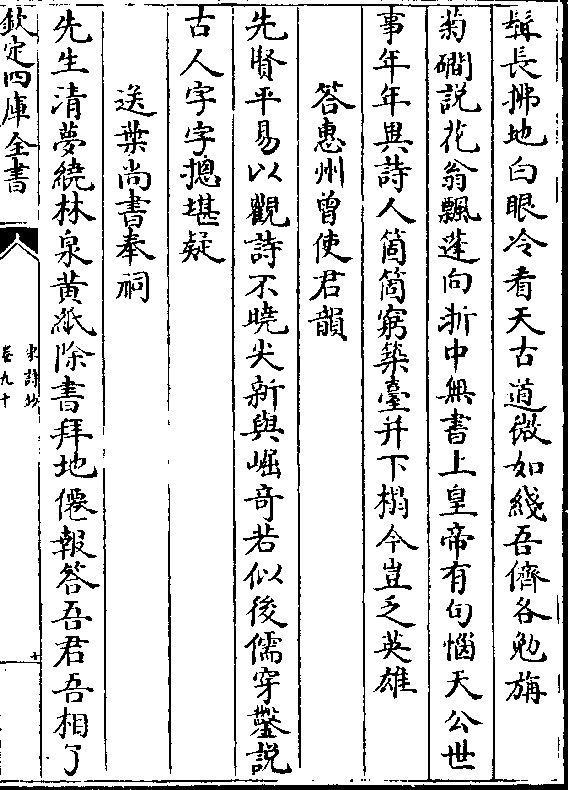 髯長拂地白眼冷看天古道微如綫吾儕各勉旃
菊磵説花翁飄蓬向浙中無書上皇帝有句惱天公世
事年年異詩人箇箇窮築臺并下榻今豈乏英雄
答惠州曾使君韻
先賢平易以觀詩不曉尖新與崛奇若似後儒穿鑿説
古人字字摠堪疑
送葉尚書奉祠
先生清夢繞林泉黃紙除書拜地僊報答吾君吾相了
欽定四庫全書
宋詩鈔
卷九十
十